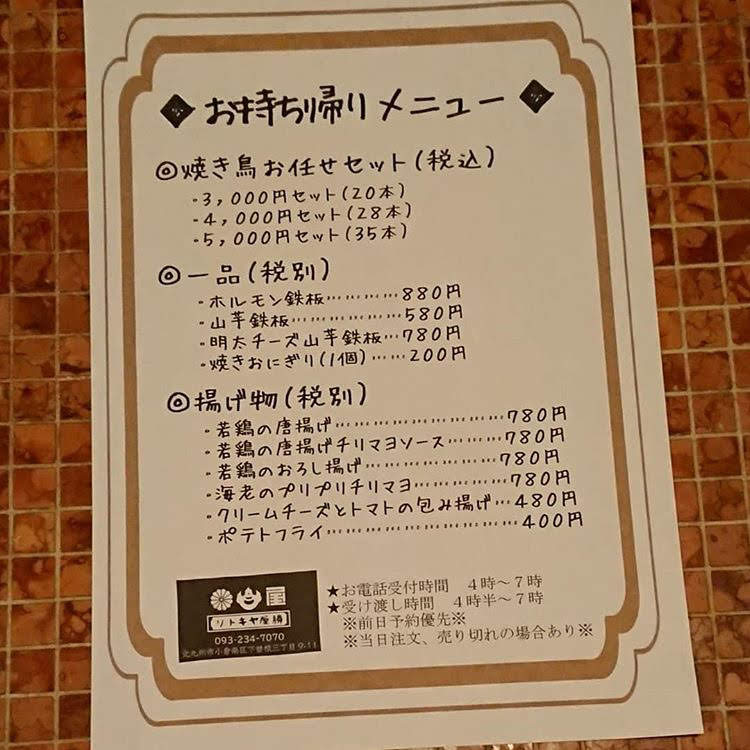 お持ち帰りメニュー
◎焼き鳥お任せセット(税込)
・3,000円セット(20本)
・4,000円セット(28本)
・5,000円セット(35本)
◎一品(税別)
・ホルモン鉄板…………880円
・山芋鉄板……………580円
・明太チーズ山芋鉄板…780円
・焼きおにぎり(1個)……200円
◎揚げ物(税別)
・若鶏の唐揚げ…………………………780円
・若鶏の唐揚げチリマヨソース………780円
・若鶏のおろし揚げ……………………780円
・海老のプリプリチリマヨ……………780円
・クリームチーズとトマトの包み揚げ…480円
・ポテトフライ…………………………400円
★お電話受付時間 4時～7時
★受け渡し時間 4時半～7時
※前日予約優先※
※当日注文、売り切れの場合あり※
ソトキヤ座椿
093-234-7070
北九州市小倉南区下曽根三丁目9-11